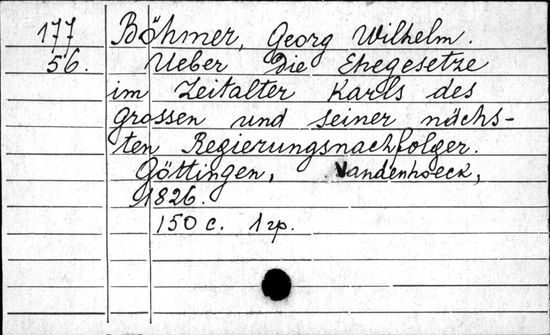 177 Böhmer, Georg Wilhelm.
56. Ueber die Ehegesetze
im Zeitalter Karls des
grossen und seiner nächs-
ten Regierungsnachfolger.
Göttingen, Vandenhoeck,
1826.
150 c. 1 гр.